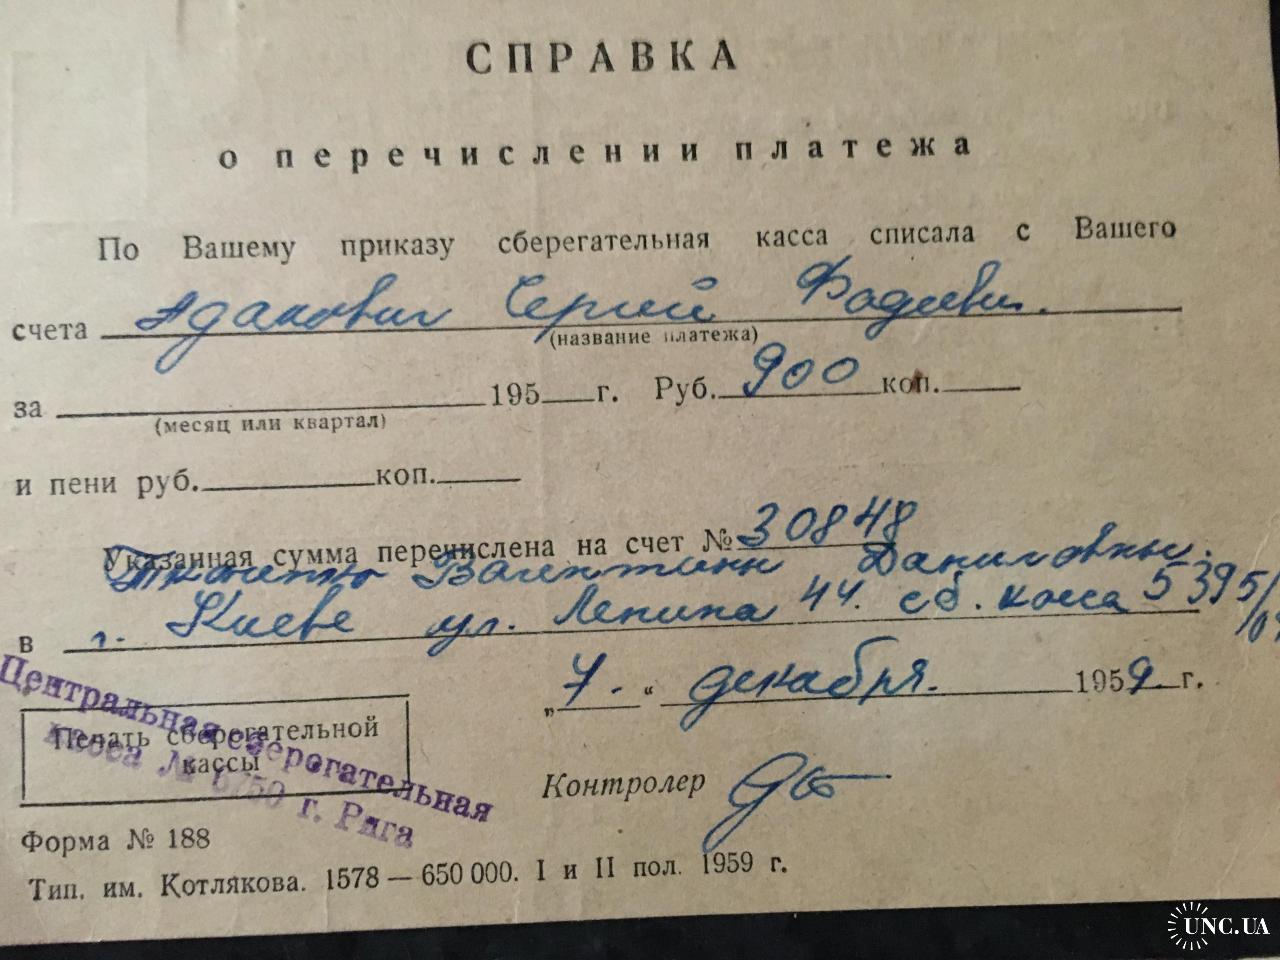 СПРАВКА
о перечислении платежа
По Вашему приказу сберегательная касса списала с Вашего
счета Адамович Сергей Фадеевич.
(название платежа)
за 195 г. Руб. 900 коп.
(месяц или квартал)
и пени руб. коп.
Указанная сумма перечислена на счет № 30848
Валентины Даниловны.
в г. Киеве ул. Ленина 44. сб. касса 5395/
„7.“ декабря. 1959 г.
Центральная сберегательная
касса № 6750 г. Рига
Печать сберегательной
кассы
Контролер
Форма № 188
Тип. им. Котлякова. 1578—650 000. I и II пол. 1959 г.
UNC.UA